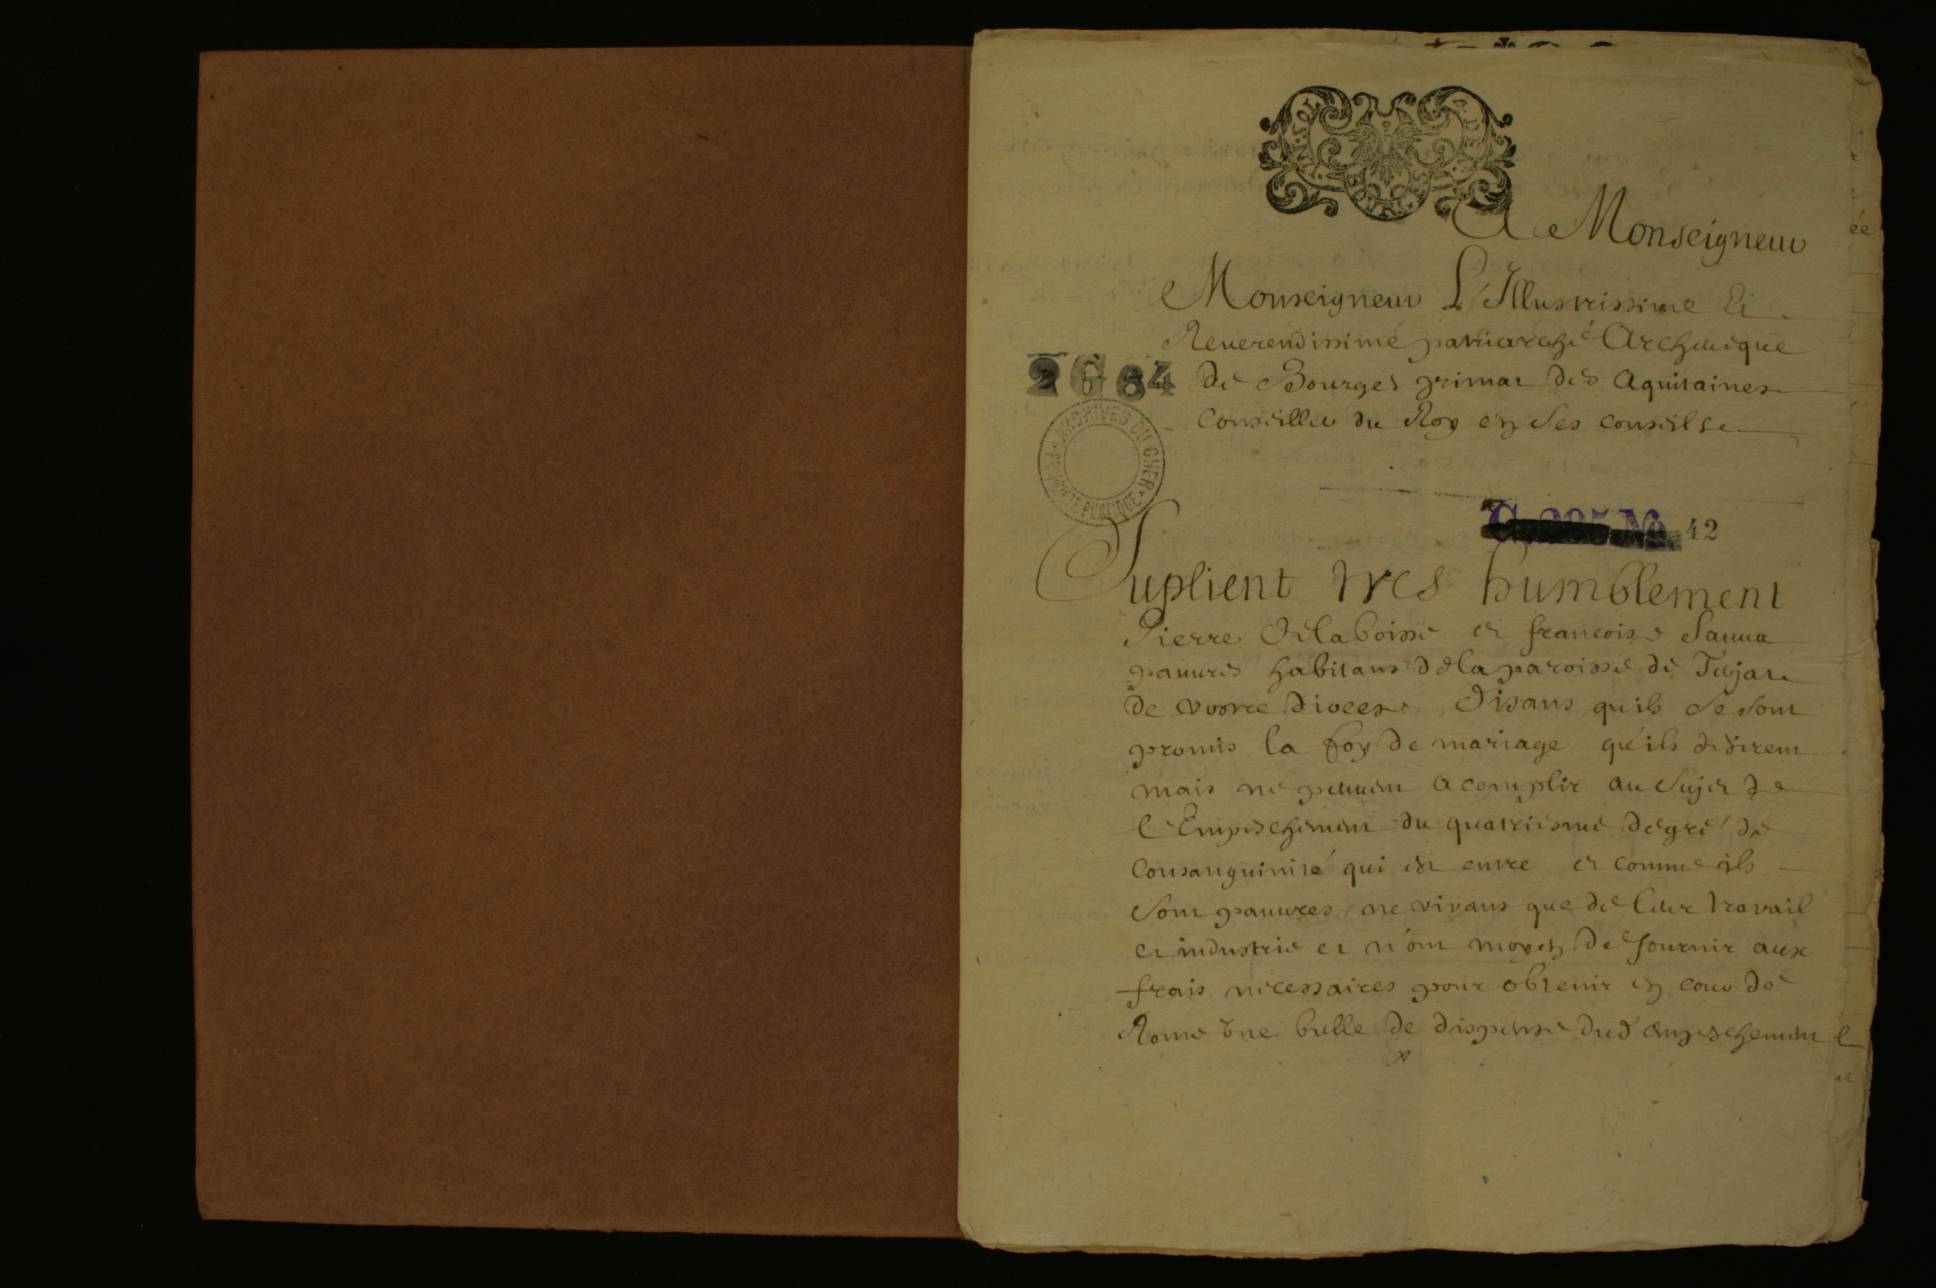 A Monseigneur
Monseigneur L'Illustrissime Et
Reuerendissime patriarche Archeueque
2 G 64 de Bourges primat des Aquitaines
Conseiller du Roy en Ses conseilse
ARCHIVES DU CHER
PROPRIÉTÉ PUBLIQUE
42
Suplient tres humblement
Pierre Delaboisse et francoise Sauua
pauures habitans de la paroisse de
de vostre diocese Disans quils se sont
promis la foy de mariage qu'ils desirent
mais ne peuuent acomplir au sujet de
l'Empeschement du quatriesme degré de
Consanguinité qui est entre et comme ils
sont pauures ne vivans que de leur travail
et industrie et n'ont moyen de fournir aux
frais necessaires pour obtenir en cour de
Rome vne bulle de dispense dud empeschement